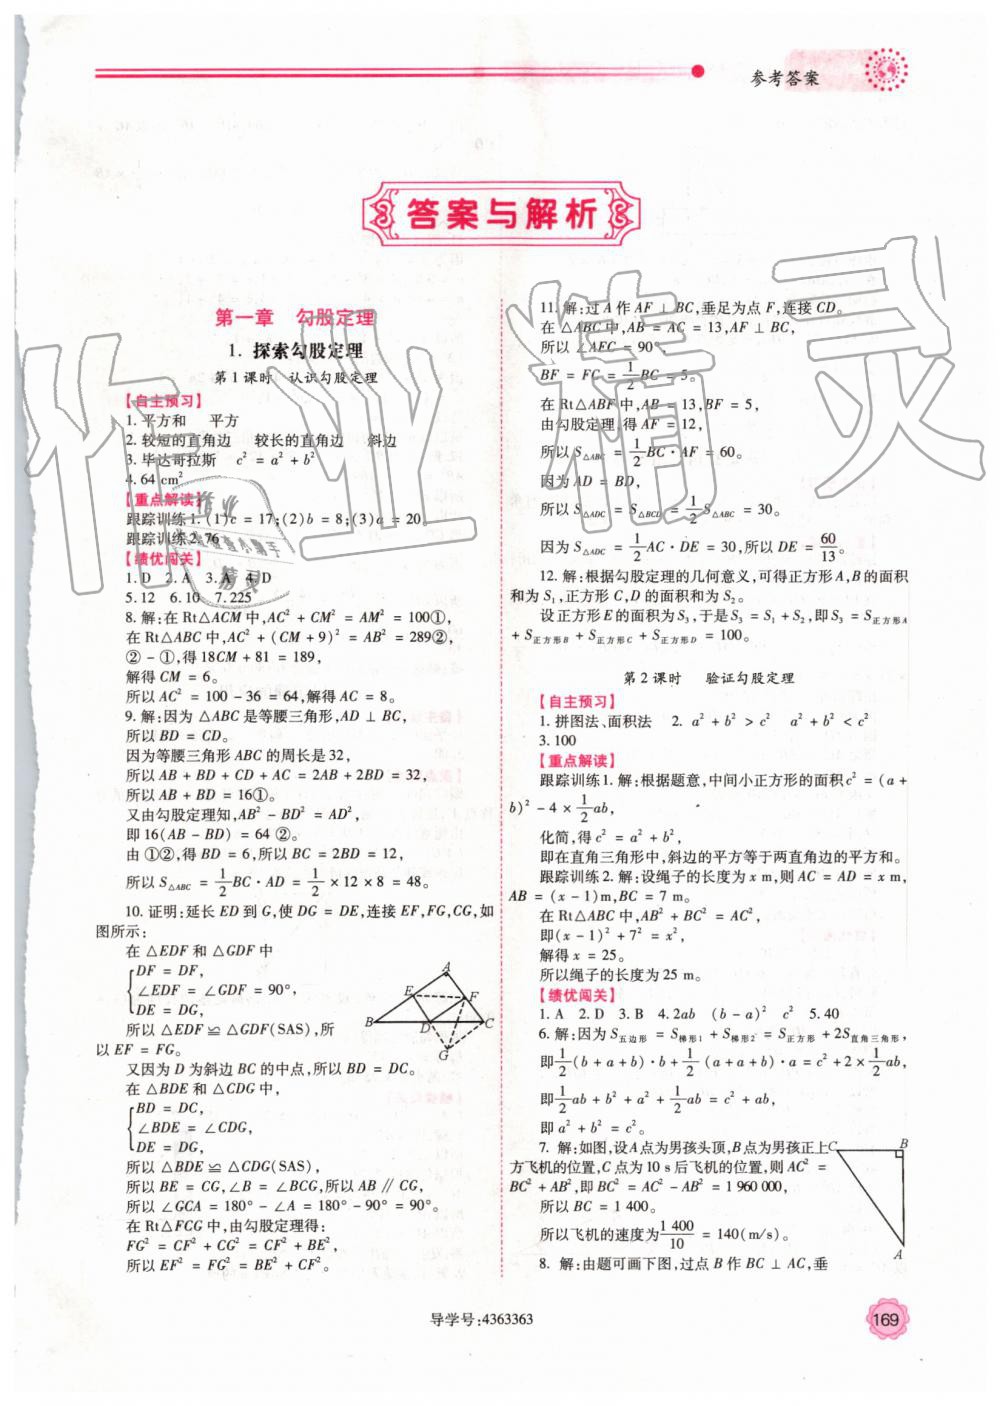 参考答案
答案与解析
第一章 勾股定理
1. 探索勾股定理
第1课时 认识勾股定理
【自主预习】
1. 平方和 平方
2. 较短的直角边 较长的直角边 斜边
3. 毕达哥拉斯 c² = a² + b²
4. 64 cm²
【重点解读】
跟踪训练1. (1)c = 17;(2)b = 8;(3)a = 20。
跟踪训练2. 76
【绩优闯关】
1. D 2. A 3. A 4. D
5. 12 6. 10 7. 225
8. 解:在 Rt△ACM 中,AC² + CM² = AM² = 100①,
在 Rt△ABC 中,AC² + (CM + 9)² = AB² = 289②,
② - ①,得 18CM + 81 = 189,
解得 CM = 6。
所以 AC² = 100 - 36 = 64,解得 AC = 8。
9. 解:因为 △ABC 是等腰三角形,AD ⊥ BC,
所以 BD = CD。
因为等腰三角形 ABC 的周长是 32,
所以 AB + BD + CD + AC = 2AB + 2BD = 32,
所以 AB + BD = 16①。
又由勾股定理知,AB² - BD² = AD²,
即 16(AB - BD) = 64 ②。
由 ①②,得 BD = 6,所以 BC = 2BD = 12,
所以 S△ABC = 1/2 BC · AD = 1/2 × 12 × 8 = 48。
10. 证明:延长 ED 到 G,使 DG = DE,连接 EF,FG,CG,如
图所示:
在 △EDF 和 △GDF 中
DF = DF,
∠EDF = ∠GDF = 90°,
DE = DG,
所以 △EDF ≌ △GDF(SAS),所
以 EF = FG。
又因为 D 为斜边 BC 的中点,所以 BD = DC。
在 △BDE 和 △CDG 中,
BD = DC,
∠BDE = ∠CDG,
DE = DG,
所以 △BDE ≌ △CDG(SAS),
所以 BE = CG,∠B = ∠BCG,所以 AB ∥ CG,
所以 ∠GCA = 180° - ∠A = 180° - 90° = 90°。
在 Rt△FCG 中,由勾股定理得:
FG² = CF² + CG² = CF² + BE²,
所以 EF² = FG² = BE² + CF²。
A
E
F
B
D
C
G
11. 解:过 A 作 AF ⊥ BC,垂足为点 F,连接 CD。
在 △ABC 中,AB = AC = 13,AF ⊥ BC,
所以 ∠AFC = 90°,
BF = FC = 1/2 BC = 5。
在 Rt△ABF 中,AB = 13,BF = 5,
由勾股定理,得 AF = 12,
所以 S△ABC = 1/2 BC · AF = 60。
因为 AD = BD,
所以 S△ADC = S△BCD = 1/2 S△ABC = 30。
因为 S△ADC = 1/2 AC · DE = 30,所以 DE = 60/13。
12. 解:根据勾股定理的几何意义,可得正方形 A,B 的面积
和为 S₁,正方形 C,D 的面积和为 S₂。
设正方形 E 的面积为 S₃,于是 S₃ = S₁ + S₂,即 S₃ = S正方形A
+ S正方形B + S正方形C + S正方形D = 100。
第2课时 验证勾股定理
【自主预习】
1. 拼图法、面积法 2. a² + b² > c² a² + b² < c²
3. 100
【重点解读】
跟踪训练1. 解:根据题意,中间小正方形的面积 c² = (a +
b)² - 4 × 1/2 ab,
化简,得 c² = a² + b²,
即在直角三角形中,斜边的平方等于两直角边的平方和。
跟踪训练2. 解:设绳子的长度为 x m,则 AC = AD = x m,
AB = (x - 1)m,BC = 7 m。
在 Rt△ABC 中,AB² + BC² = AC²,
即 (x - 1)² + 7² = x²,
解得 x = 25。
所以绳子的长度为 25 m。
【绩优闯关】
1. A 2. D 3. B 4. 2ab (b - a)² c² 5. 40
6. 解:因为 S五边形 = S梯形1 + S梯形2 = S正方形 + 2S直角三角形,
即 1/2 (b + a + b) · b + 1/2 (a + a + b) · a = c² + 2 × 1/2 ab,
即 1/2 ab + b² + a² + 1/2 ab = c² + ab,
即 a² + b² = c²。
7. 解:如图,设 A 点为男孩头顶,B 点为男孩正上
方飞机的位置,C 点为 10 s 后飞机的位置,则 AC² =
BC² + AB²,即 BC² = AC² - AB² = 1 960 000,
所以 BC = 1 400。
所以飞机的速度为 1 400/10 = 140(m/s)。
C
B
A
8. 解:由题可画下图,过点 B 作 BC ⊥ AC,垂
导学号:4363363
169
作业精灵